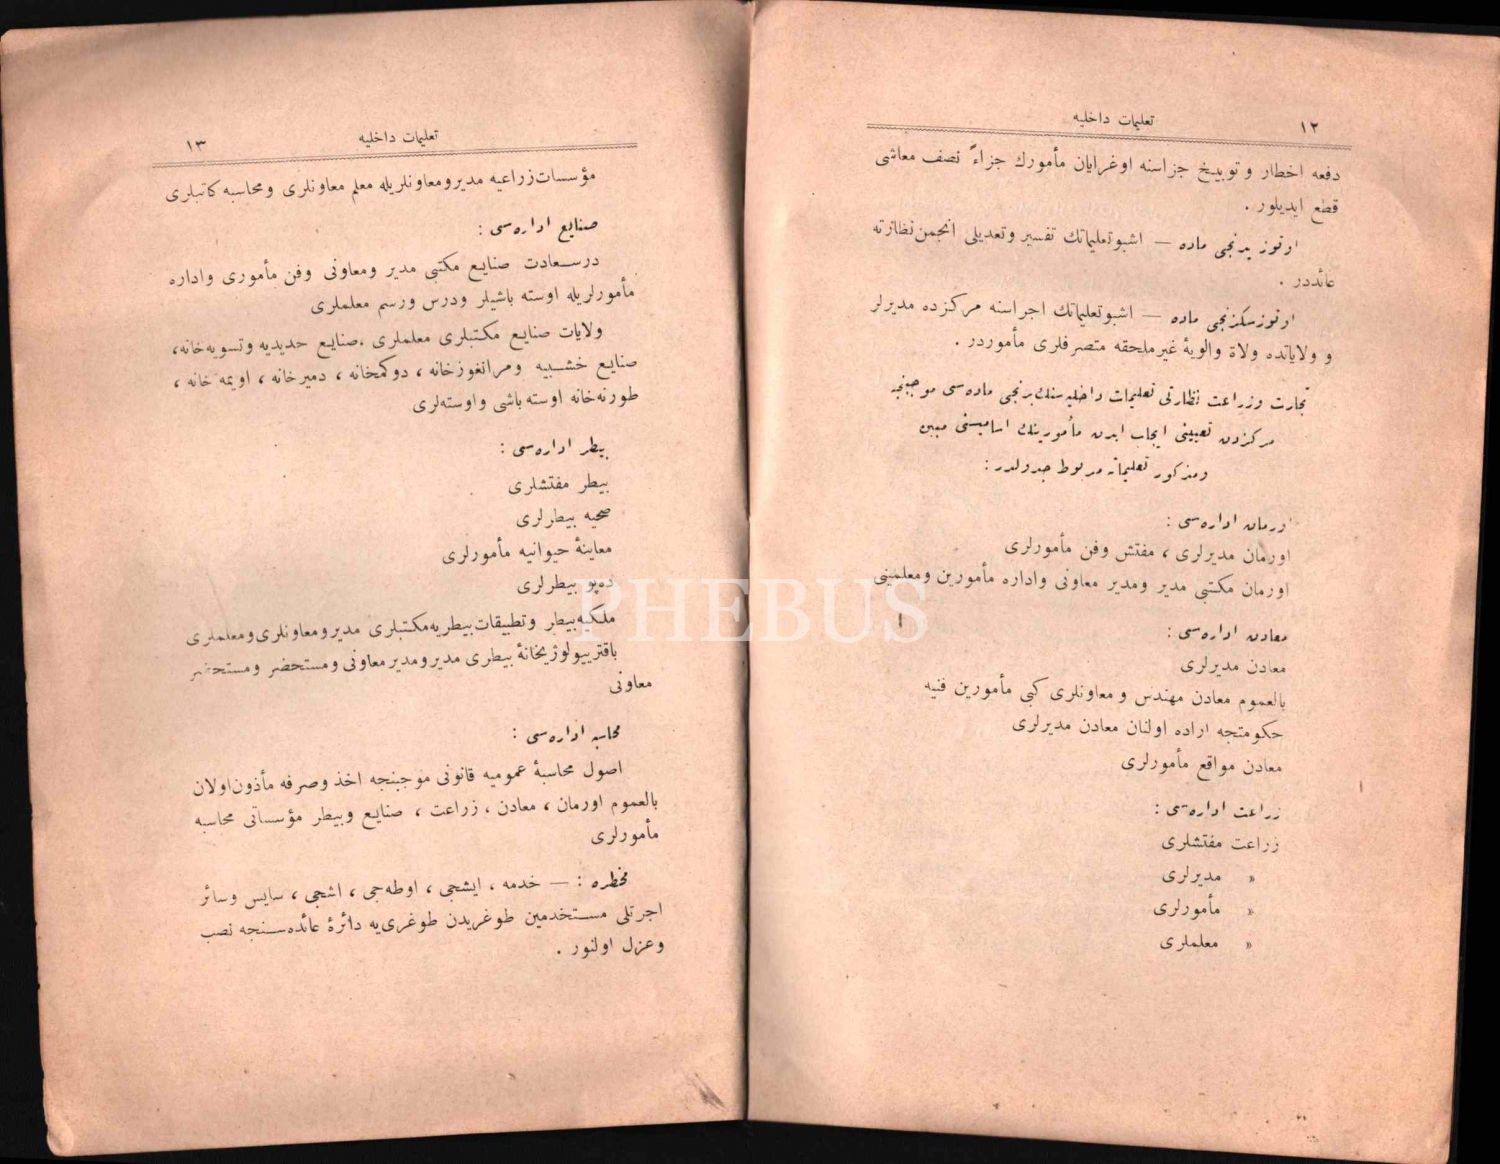 ١٢
تعلیمات داخلیه
دفعه اخطار و توبیخ جزاسنه اوغرایان مأمورك جزاءً نصف معاشی
قطع ایدیلور .
اوتوز یدنجی ماده — اشبو تعلیماتك تفسیر و تعدیلی انجمن نظارته
عائددر .
اوتوز سکزنجی ماده — اشبو تعلیماتك اجراسنه مرکزده مدیرلر
و ولایاتده ولاة و الویهٔ غیر ملحقه متصرفلری مأموردر .
تجارت و زراعت نظارتی تعلیمات داخلیه سنك برنجی ماده سی موجبنجه
مرکزدن تعیینی ایجاب ایدن مأمورینك اسامیسنی مبین
و مذکور تعلیماته مربوط جدولدر :
اورمان اداره سی :
اورمان مدیرلری ، مفتش وفن مأمورلری
اورمان مکتبی مدیر ومدیر معاونی واداره مأمورین ومعلمینی
معادن اداره سی :
معادن مدیرلری
بالعموم معادن مهندس و معاونلری کبی مأمورین فنیه
حکومتجه اراده اولنان معادن مدیرلری
معادن مواقع مأمورلری
زراعت اداره سی :
زراعت مفتشلری
» مدیرلری
» مأمورلری
» معلملری
تعلیمات داخلیه
١٣
مؤسسات زراعیه مدیر ومعاونلریله معلم معاونلری ومحاسبه کاتبلری
صنایع اداره سی :
درسعادت صنایع مکتبی مدیر ومعاونی وفن مأموری واداره
مأمورلریله اوسته باشیلر ودرس ورسم معلملری
ولایات صنایع مکتبلری معلملری ، صنایع حدیدیه وتسویه خانه ،
صنایع خشبیه ومرانغوزخانه ، دوکمخانه ، دمیرخانه ، اویمه خانه ،
طورنه خانه اوسته باشی واوسته لری
بیطر اداره سی :
بیطر مفتشلری
صحیه بیطرلری
معاینهٔ حیوانیه مأمورلری
ده پو بیطرلری
ملکیه بیطر وتطبیقات بیطریه مکتبلری مدیر ومعاونلری ومعلملری
باقتریولوژیخانهٔ بیطری مدیر ومدیر معاونی ومستحضر ومستحضر
معاونی
محاسبه اداره سی :
اصول محاسبهٔ عمومیه قانونی موجبنجه اخذ وصرفه مأذون اولان
بالعموم اورمان ، معادن ، زراعت ، صنایع وبیطر مؤسساتی محاسبه
مأمورلری
مخطره : — خدمه ، ایشجی ، اوطه جی ، اشجی ، سایس وسائر
اجرتلی مستخدمین طوغریدن طوغری یه دائرهٔ عائده سنجه نصب
وعزل اولنور .
PHEBUS